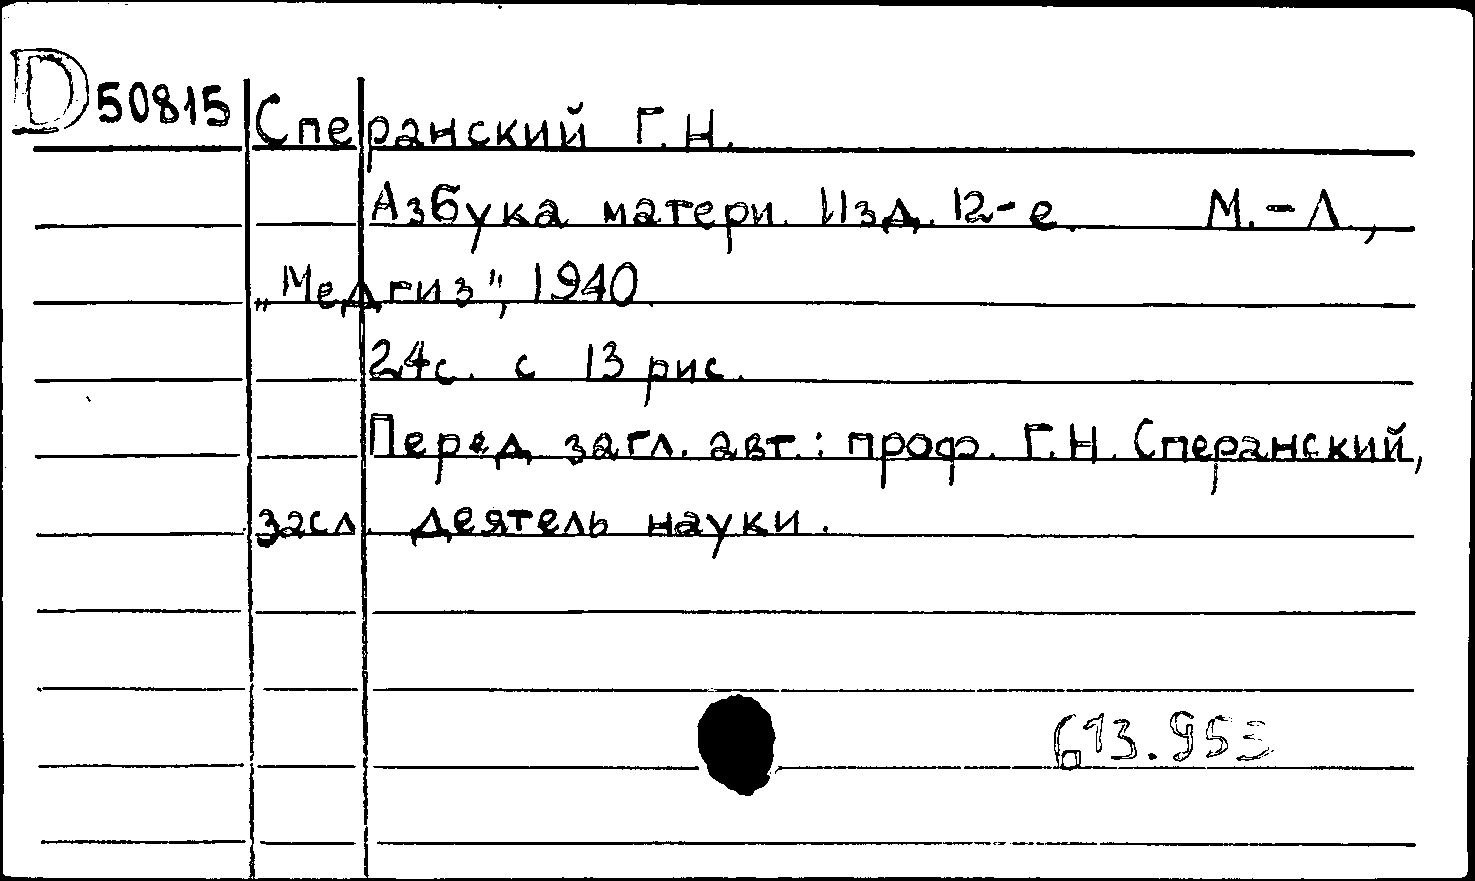 D 50815 Сперанский Г.Н.
Азбука матери. Изд. 12-е. М.-Л.,
„Медгиз", 1940.
24с. с 13 рис.
Перед загл. авт.: проф. Г.Н. Сперанский,
засл. деятель науки.
613.953